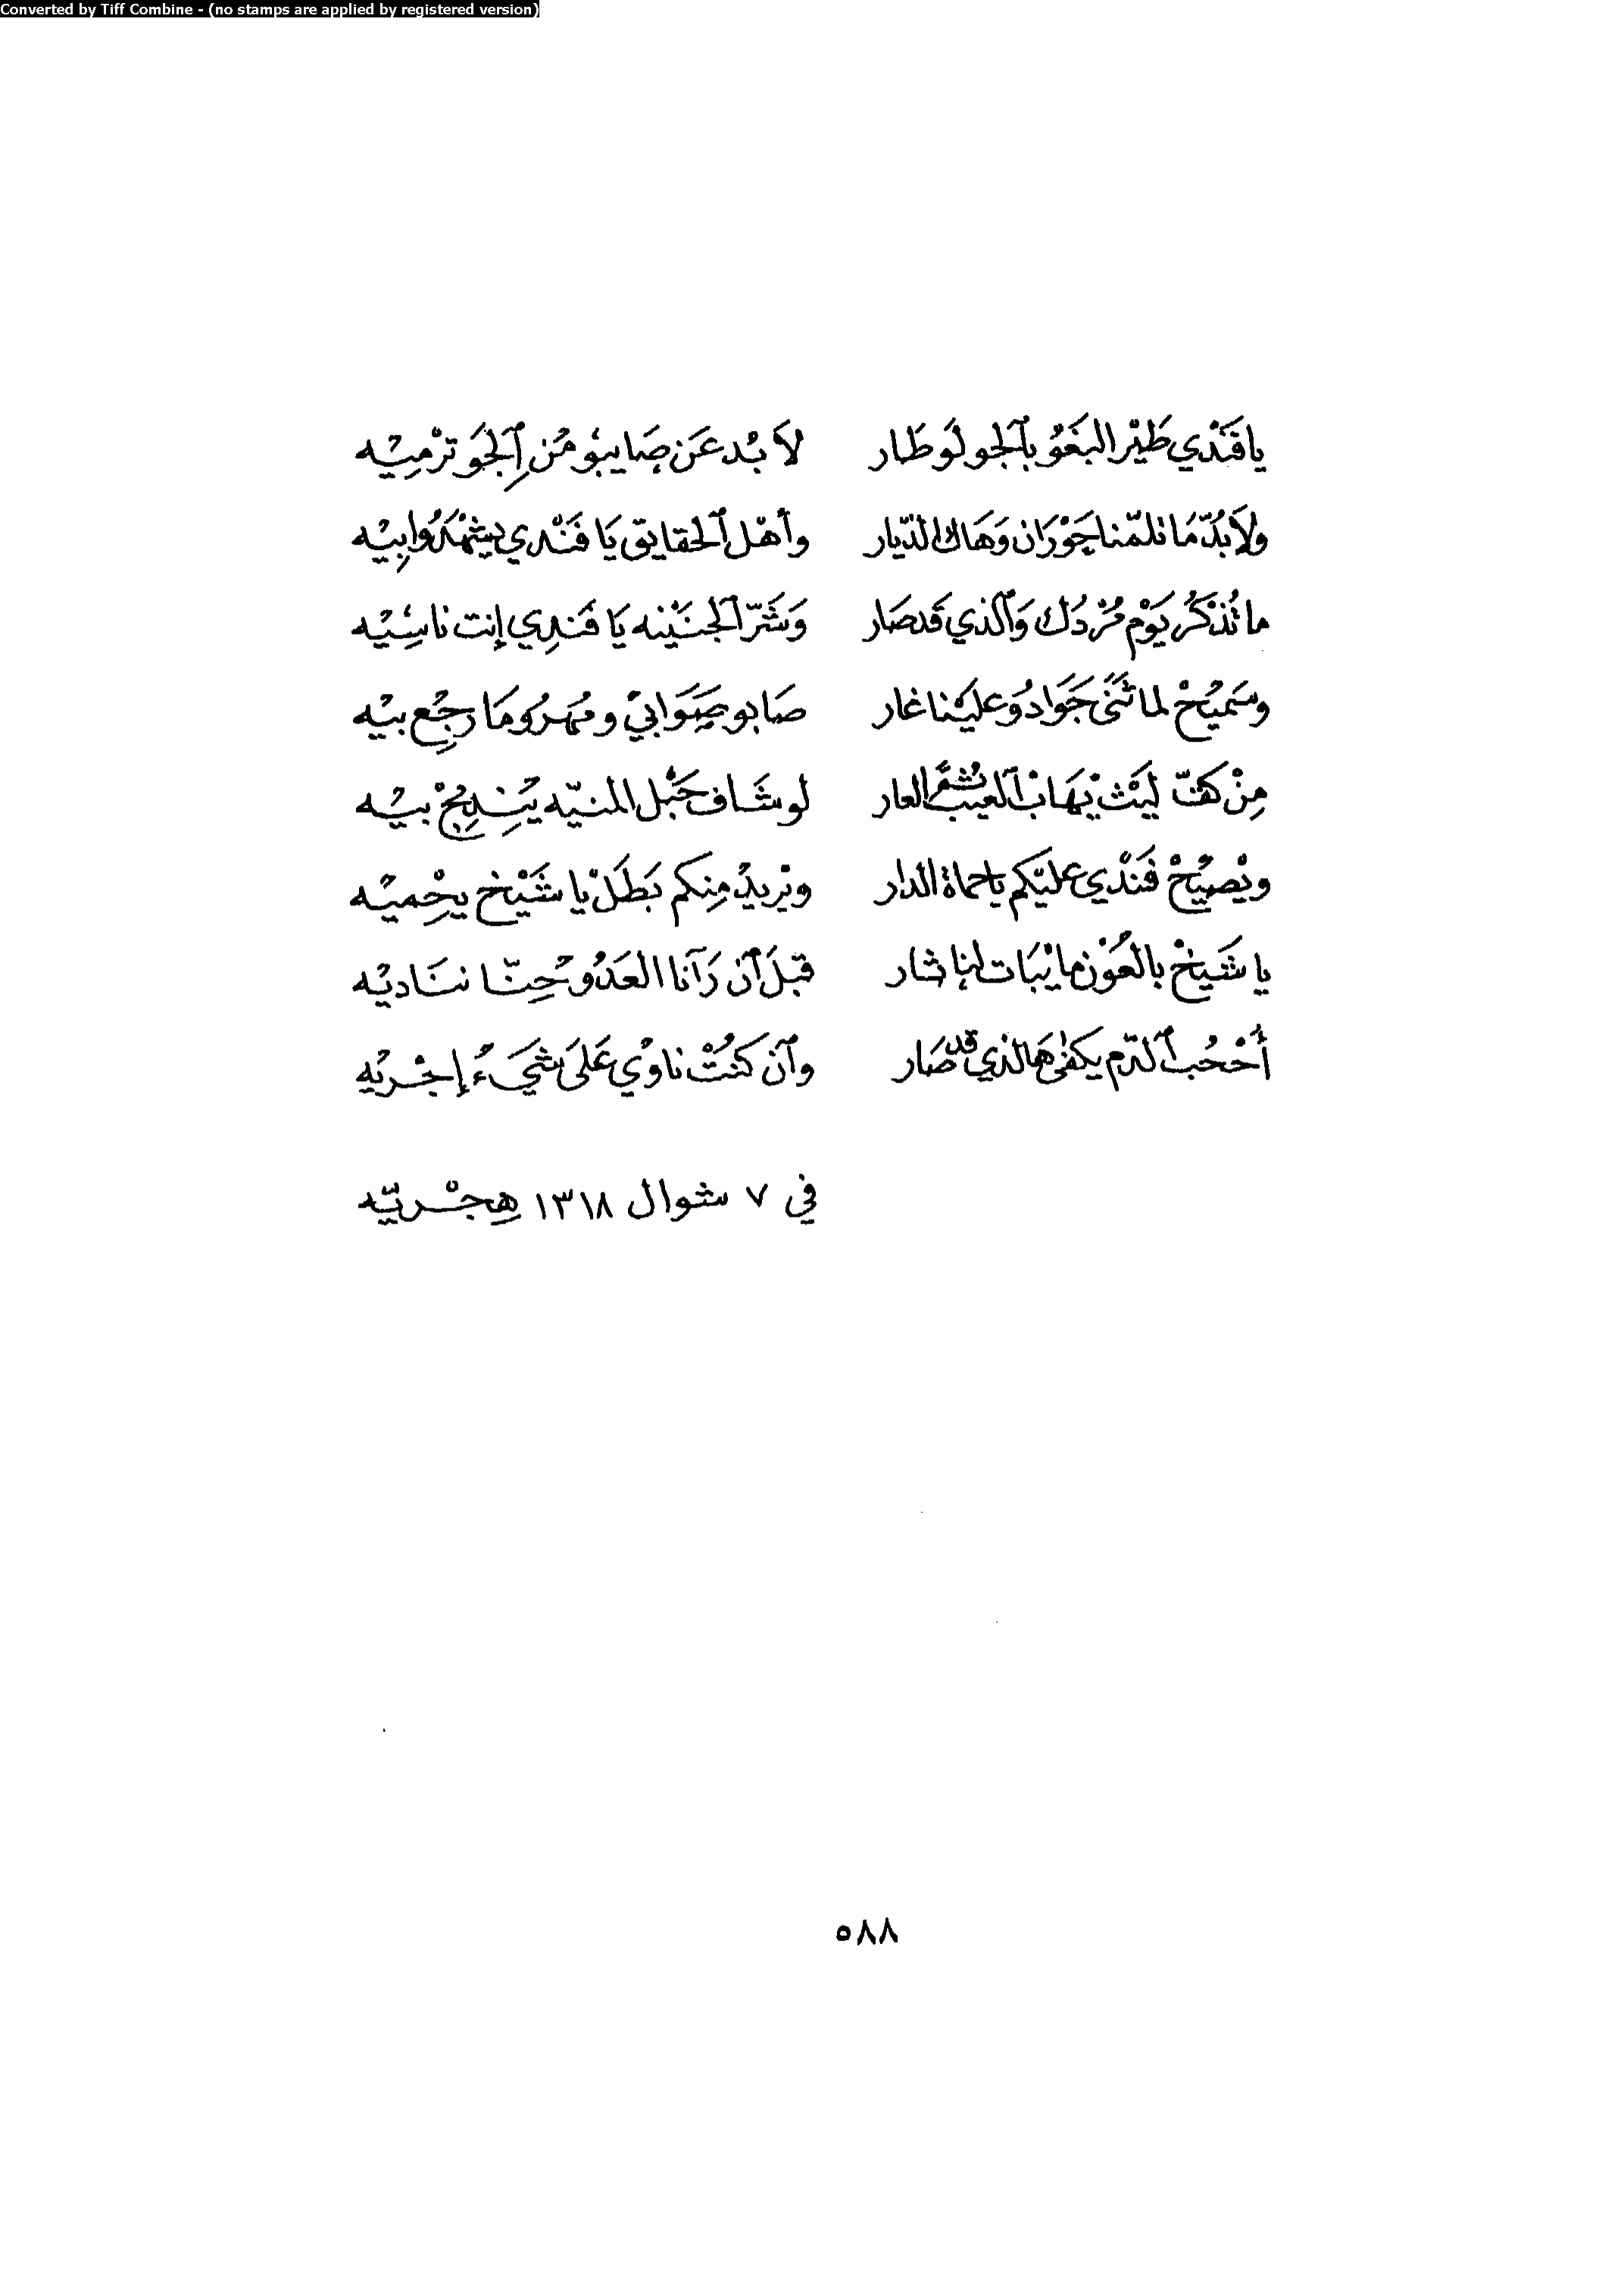 Converted by Tiff Combine - (no stamps are applied by registered version)
يا فَنْدي طَيْر البَغَوْ بِٱلجو لَو طَار لاَ بُد عَن صَايبُو مْن ٱلجَو ترْمِيْه
ولاَبُدّ مَا نلمّنا حَوْرَان وَهَاك الدّيار وأهْل ٱلحقايق يَا فَنْدي يشْهَدُوا بِيْه
ما تُذْكَرُ يَوْم مُزْدَك وَٱلذي قَد صَار وَشَرّ ٱلجنَيْنه يَا فَندِي إنت ناسِيْه
وسَميْحْ لما ثَنَى جَوَادُو عليْنا غار صَابو صَوَابي ومُهرُو مَا رجِع بيْه
مِنْ كَفّ لَيْثْ يَهَابْ ٱلعيب شمّ العار لو شَاف حَبْل المنيّه يَنِدِحْ بيْه
ويْصيْحْ فَنْدي عليْكم يا حماة الدار ويْريدْ مِنكم بَطَلْ يا شَيْخ يحْمِيْه
يا شَيْخْ بالعَوْن ما يْبَات لنا ثار قبْلَ أن رَآنا العَدُو حِنّا ننَاديْه
أُحْجُب ٱلدّم يكفَى هَالذي قد صَار وَٱن كنْتْ ناوْي عَلىَ شَيءْ إجْريْه
في ٧ شوال ١٣١٨ هِجْريّه
٥٨٨